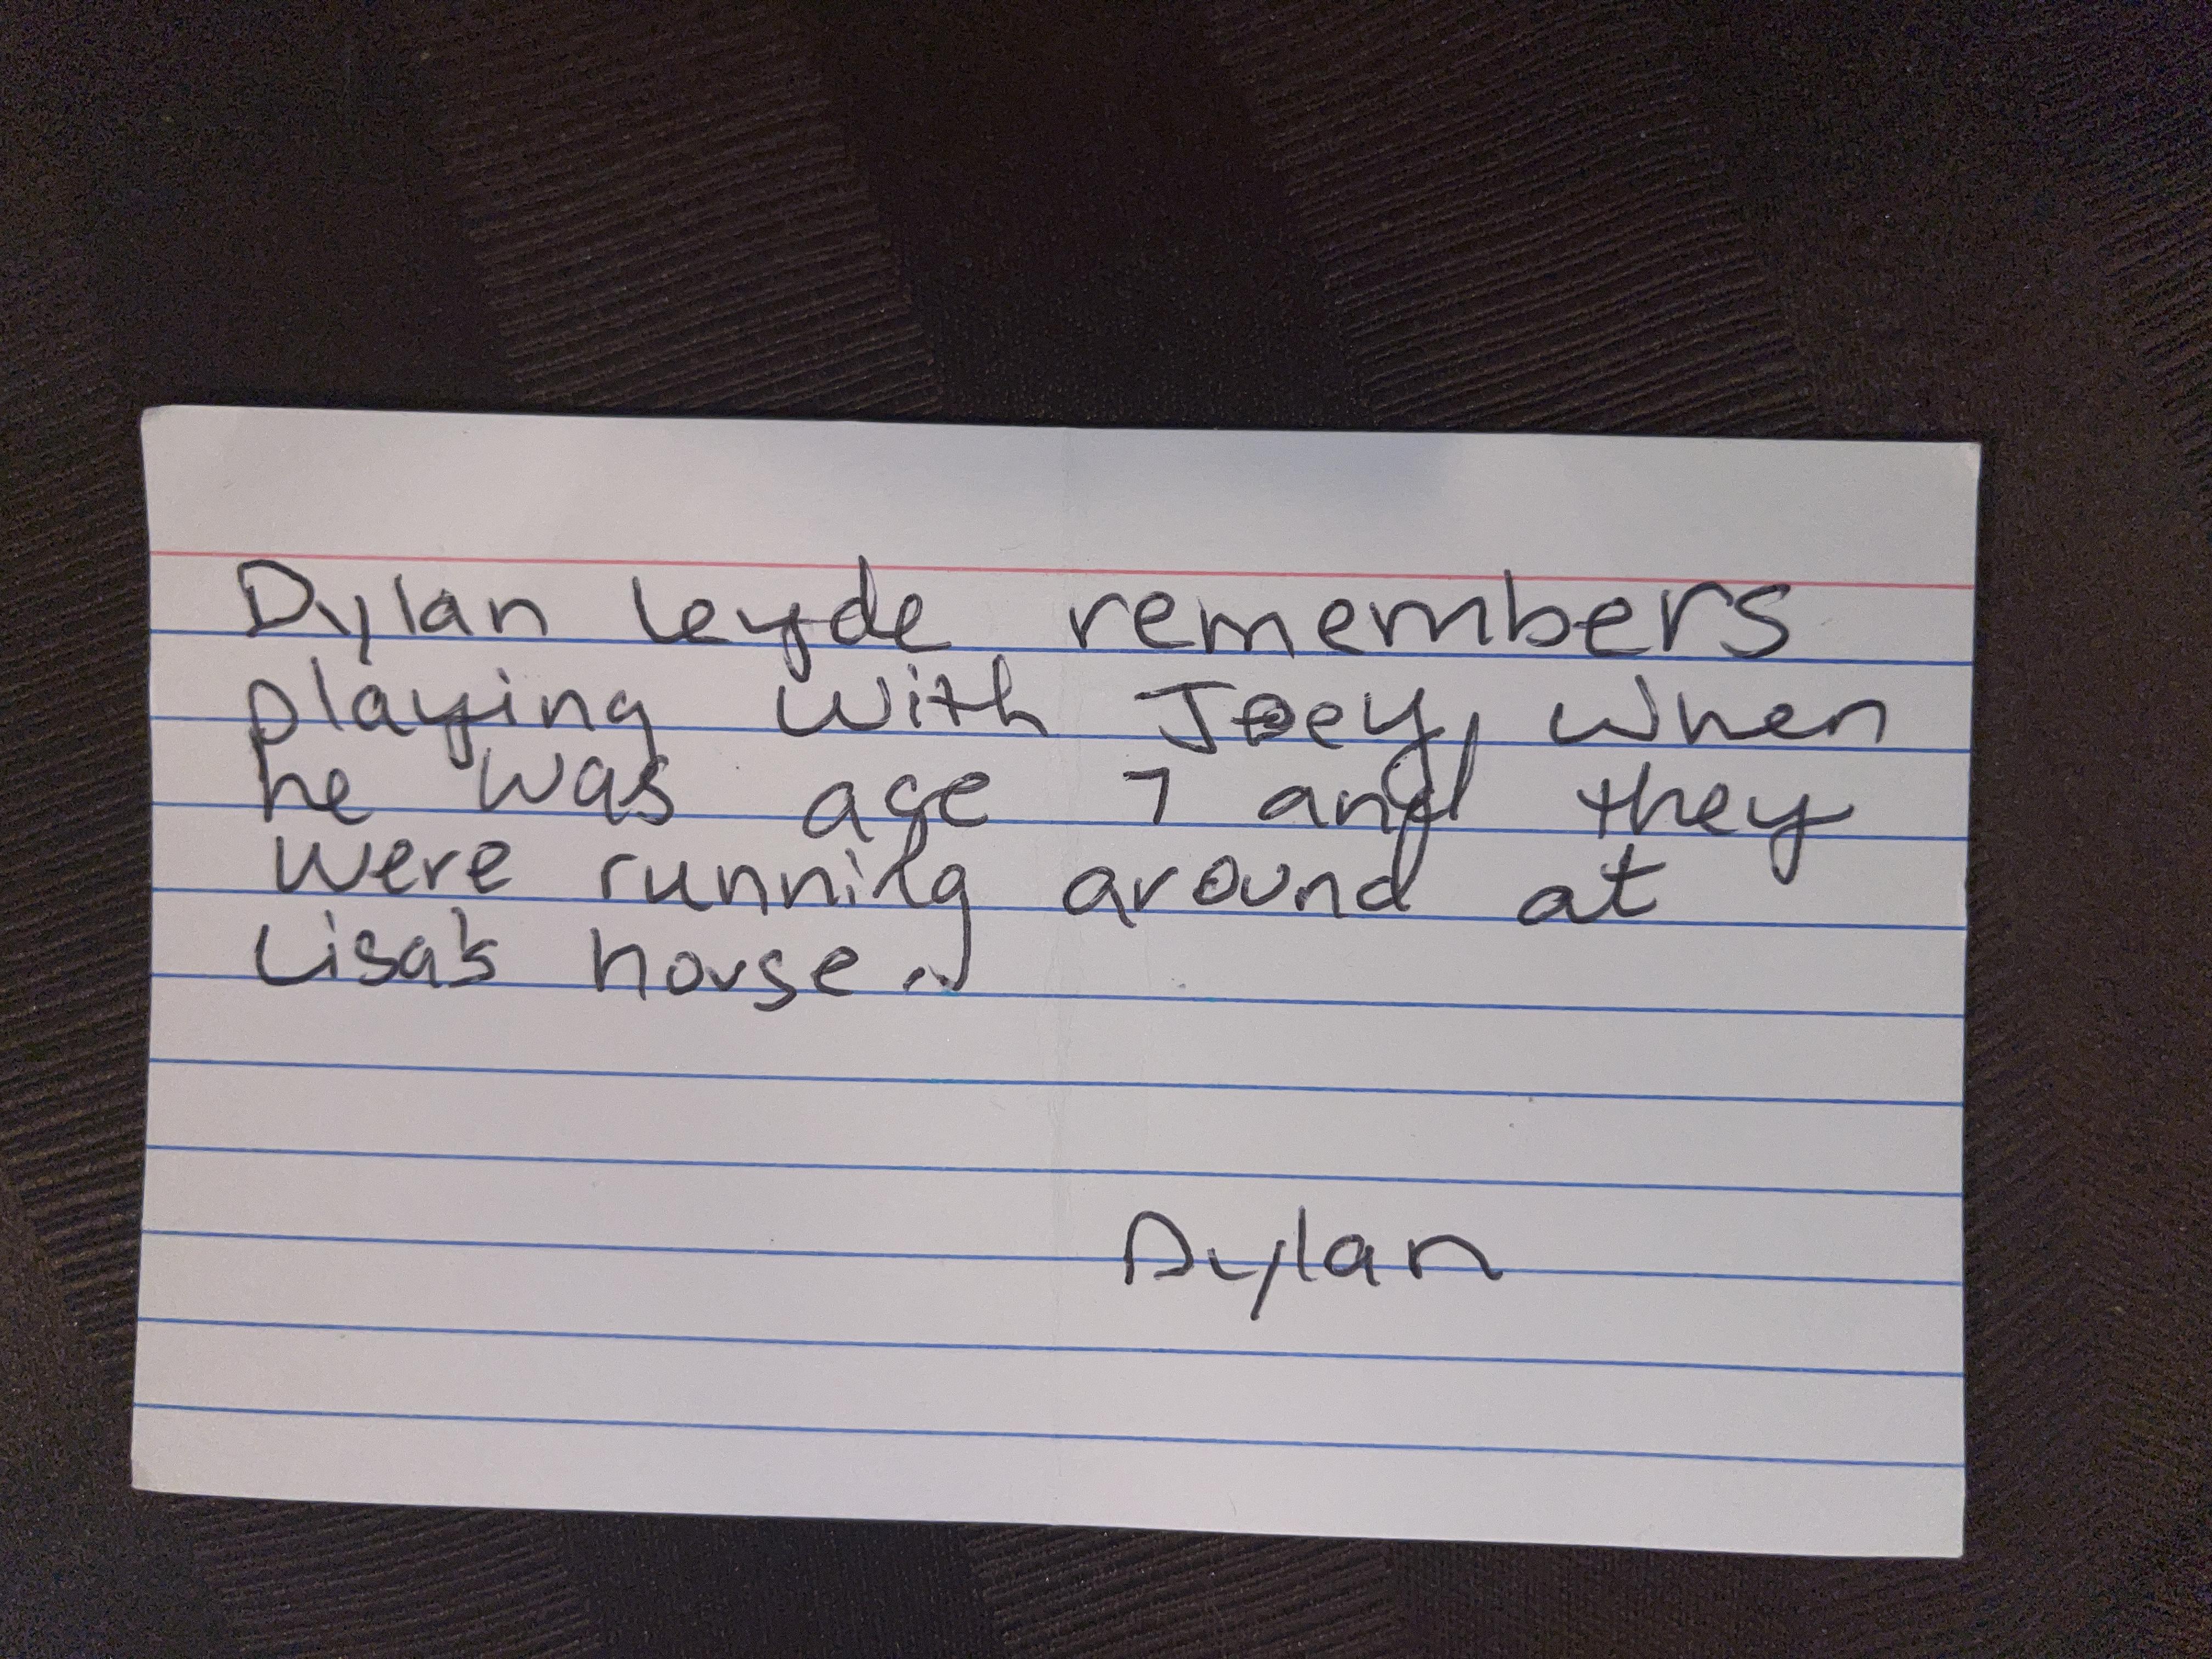 Dylan Leyde remembers
playing with Joey, when
he was age 7 and they
were running around at
Lisa's house.
Dylan